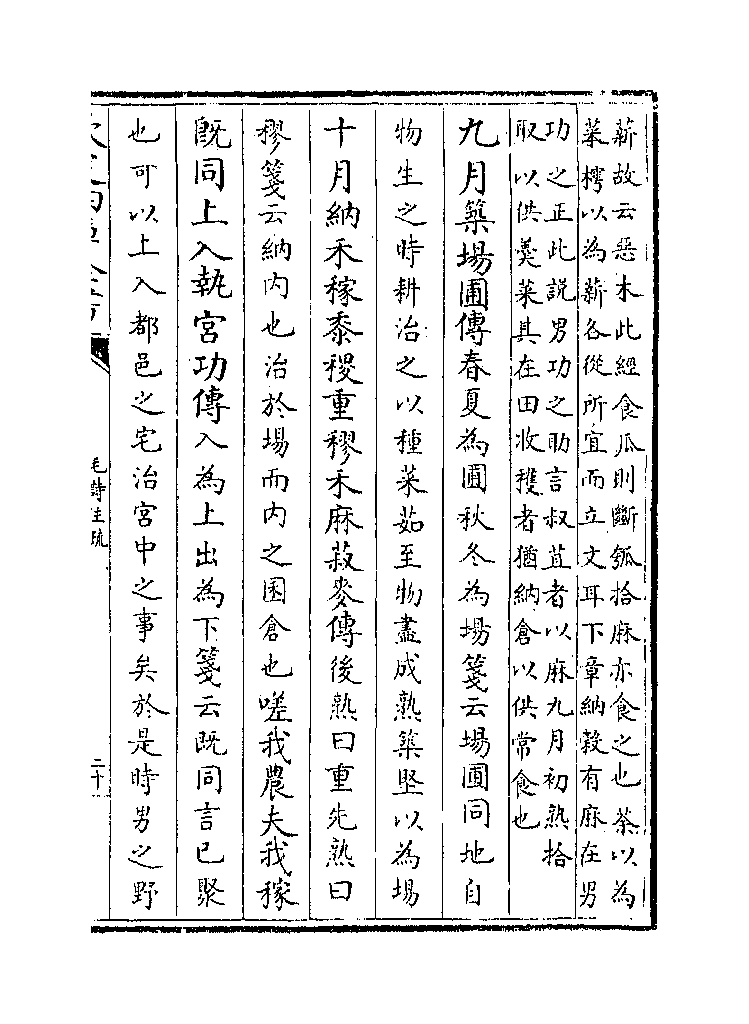 薪故云惡木此經食瓜則斷瓠拾麻亦食之也荼以為
菜樗以為薪各從所宜而立文耳下章納穀有麻在男
功之正此說男功之助言叔苴者以麻九月初熟拾
取以供羮菜其在田收穫者猶納倉以供常食也
九月築場圃傳春夏為圃秋冬為場箋云場圃同地自
物生之時耕治之以種菜茹至物盡成熟築堅以為場
十月納禾稼黍稷重穋禾麻菽麥傳後熟曰重先熟曰
穋箋云納内也治於場而内之囷倉也嗟我農夫我稼
既同上入執宮功傳入為上出為下箋云既同言已聚
也可以上入都邑之宅治宮中之事矣於是時男之野
毛詩注疏
二十